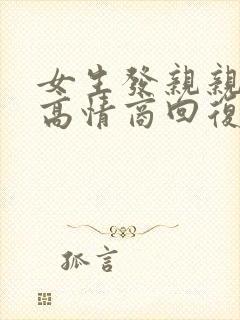 女生發親親
高情商回復
孤言